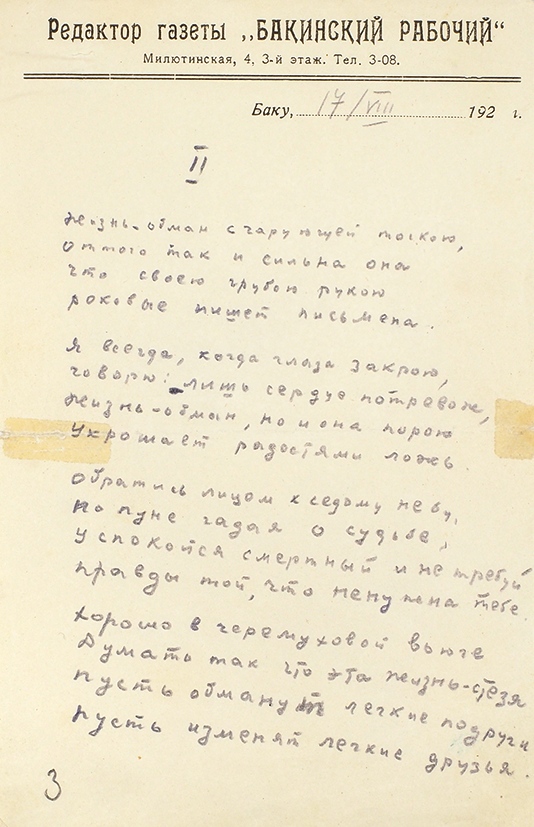 Редактор газеты „БАКИНСКИЙ РАБОЧИЙ“
Милютинская, 4, 3-й этаж. Тел. 3-08.
Баку, 17/VIII 192 г.
II
Жизнь-обман с чарующей тоскою,
оттого так и сильна она
что своею грубою рукою
роковые пишет письмена.
Я всегда, когда глаза закрою,
говорю: лишь сердце потревожь,
Жизнь-обман, но и она порою
Украшает радостями ложь.
Обратись лицом к седому небу,
По луне гадая о судьбе,
Успокойся смертный и не требуй
правды той, что не нужна тебе
хорошо в черемуховой вьюге
Думать так что эта жизнь-стезя
пусть обманут легкие подруги
пусть изменят легкие друзья.
3